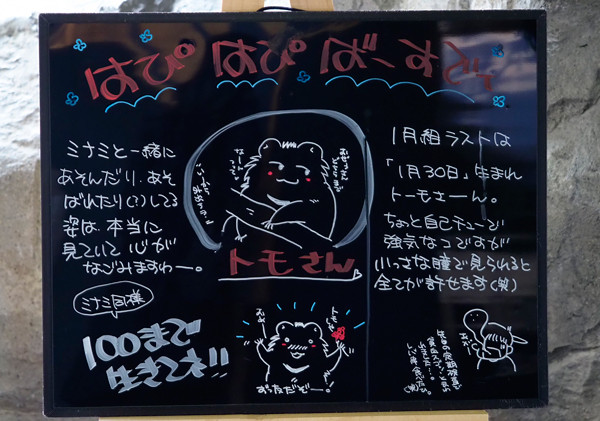 はぴ はぴ ばーすでい
ミナミと一緒に
あそんだり、あそ
ばれたり(?)してる
姿は、本当に
見ていて心が
なごみますわー。
ミナミ同様
100まで
生きてネ!!
トモさん
1月組ラストは
「1月30日」生まれ
トーモさーん。
ちょと自己チューで
強気なコですが
小っさな瞳で見られると
全てが許せます(笑)
ずっ友だぞー!